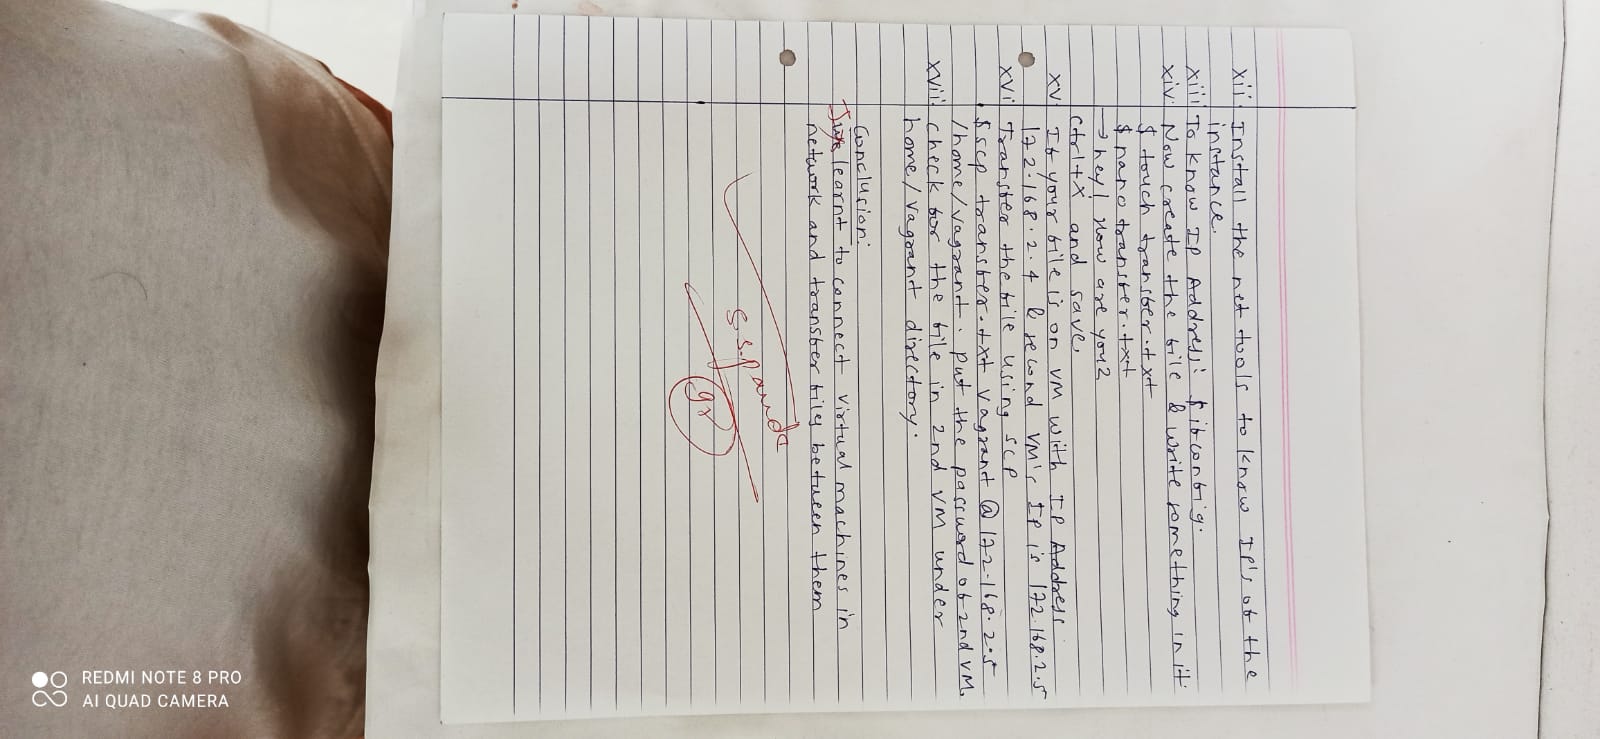 xii. Install the net tools to know IP's of the
instance.
xiii. To know IP Address: $ ifconfig.
xiv. Now create the file & write something in it.
$ touch transfer.txt
$ nano transfer.txt
→ hey! how are you?
ctrl+x and save.
xv. If your file is on VM with IP Address
172.168.2.4 & second VM's IP is 172.168.2.5
xvi Transfer the file using scp
$scp transfer.txt vagrant@172.168.2.5
/home/vagrant. put the password of 2nd VM.
xvii. check for the file in 2nd VM under
home/vagrant directory.
Conclusion:
learnt to connect virtual machines in
network and transfer files between them
REDMI NOTE 8 PRO
AI QUAD CAMERA